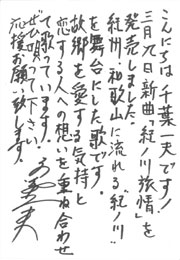 こんにちは千葉一夫です!
三月九日新曲「紀ノ川旅情」を
発売しました。
紀州・和歌山に流れる"紀ノ川"
を舞台にした歌です!
故郷を愛する気持と
恋する人への想いを重ね合わせ
て歌っています。
ぜひ唄って下さい。
応援お願い致します。
千葉一夫